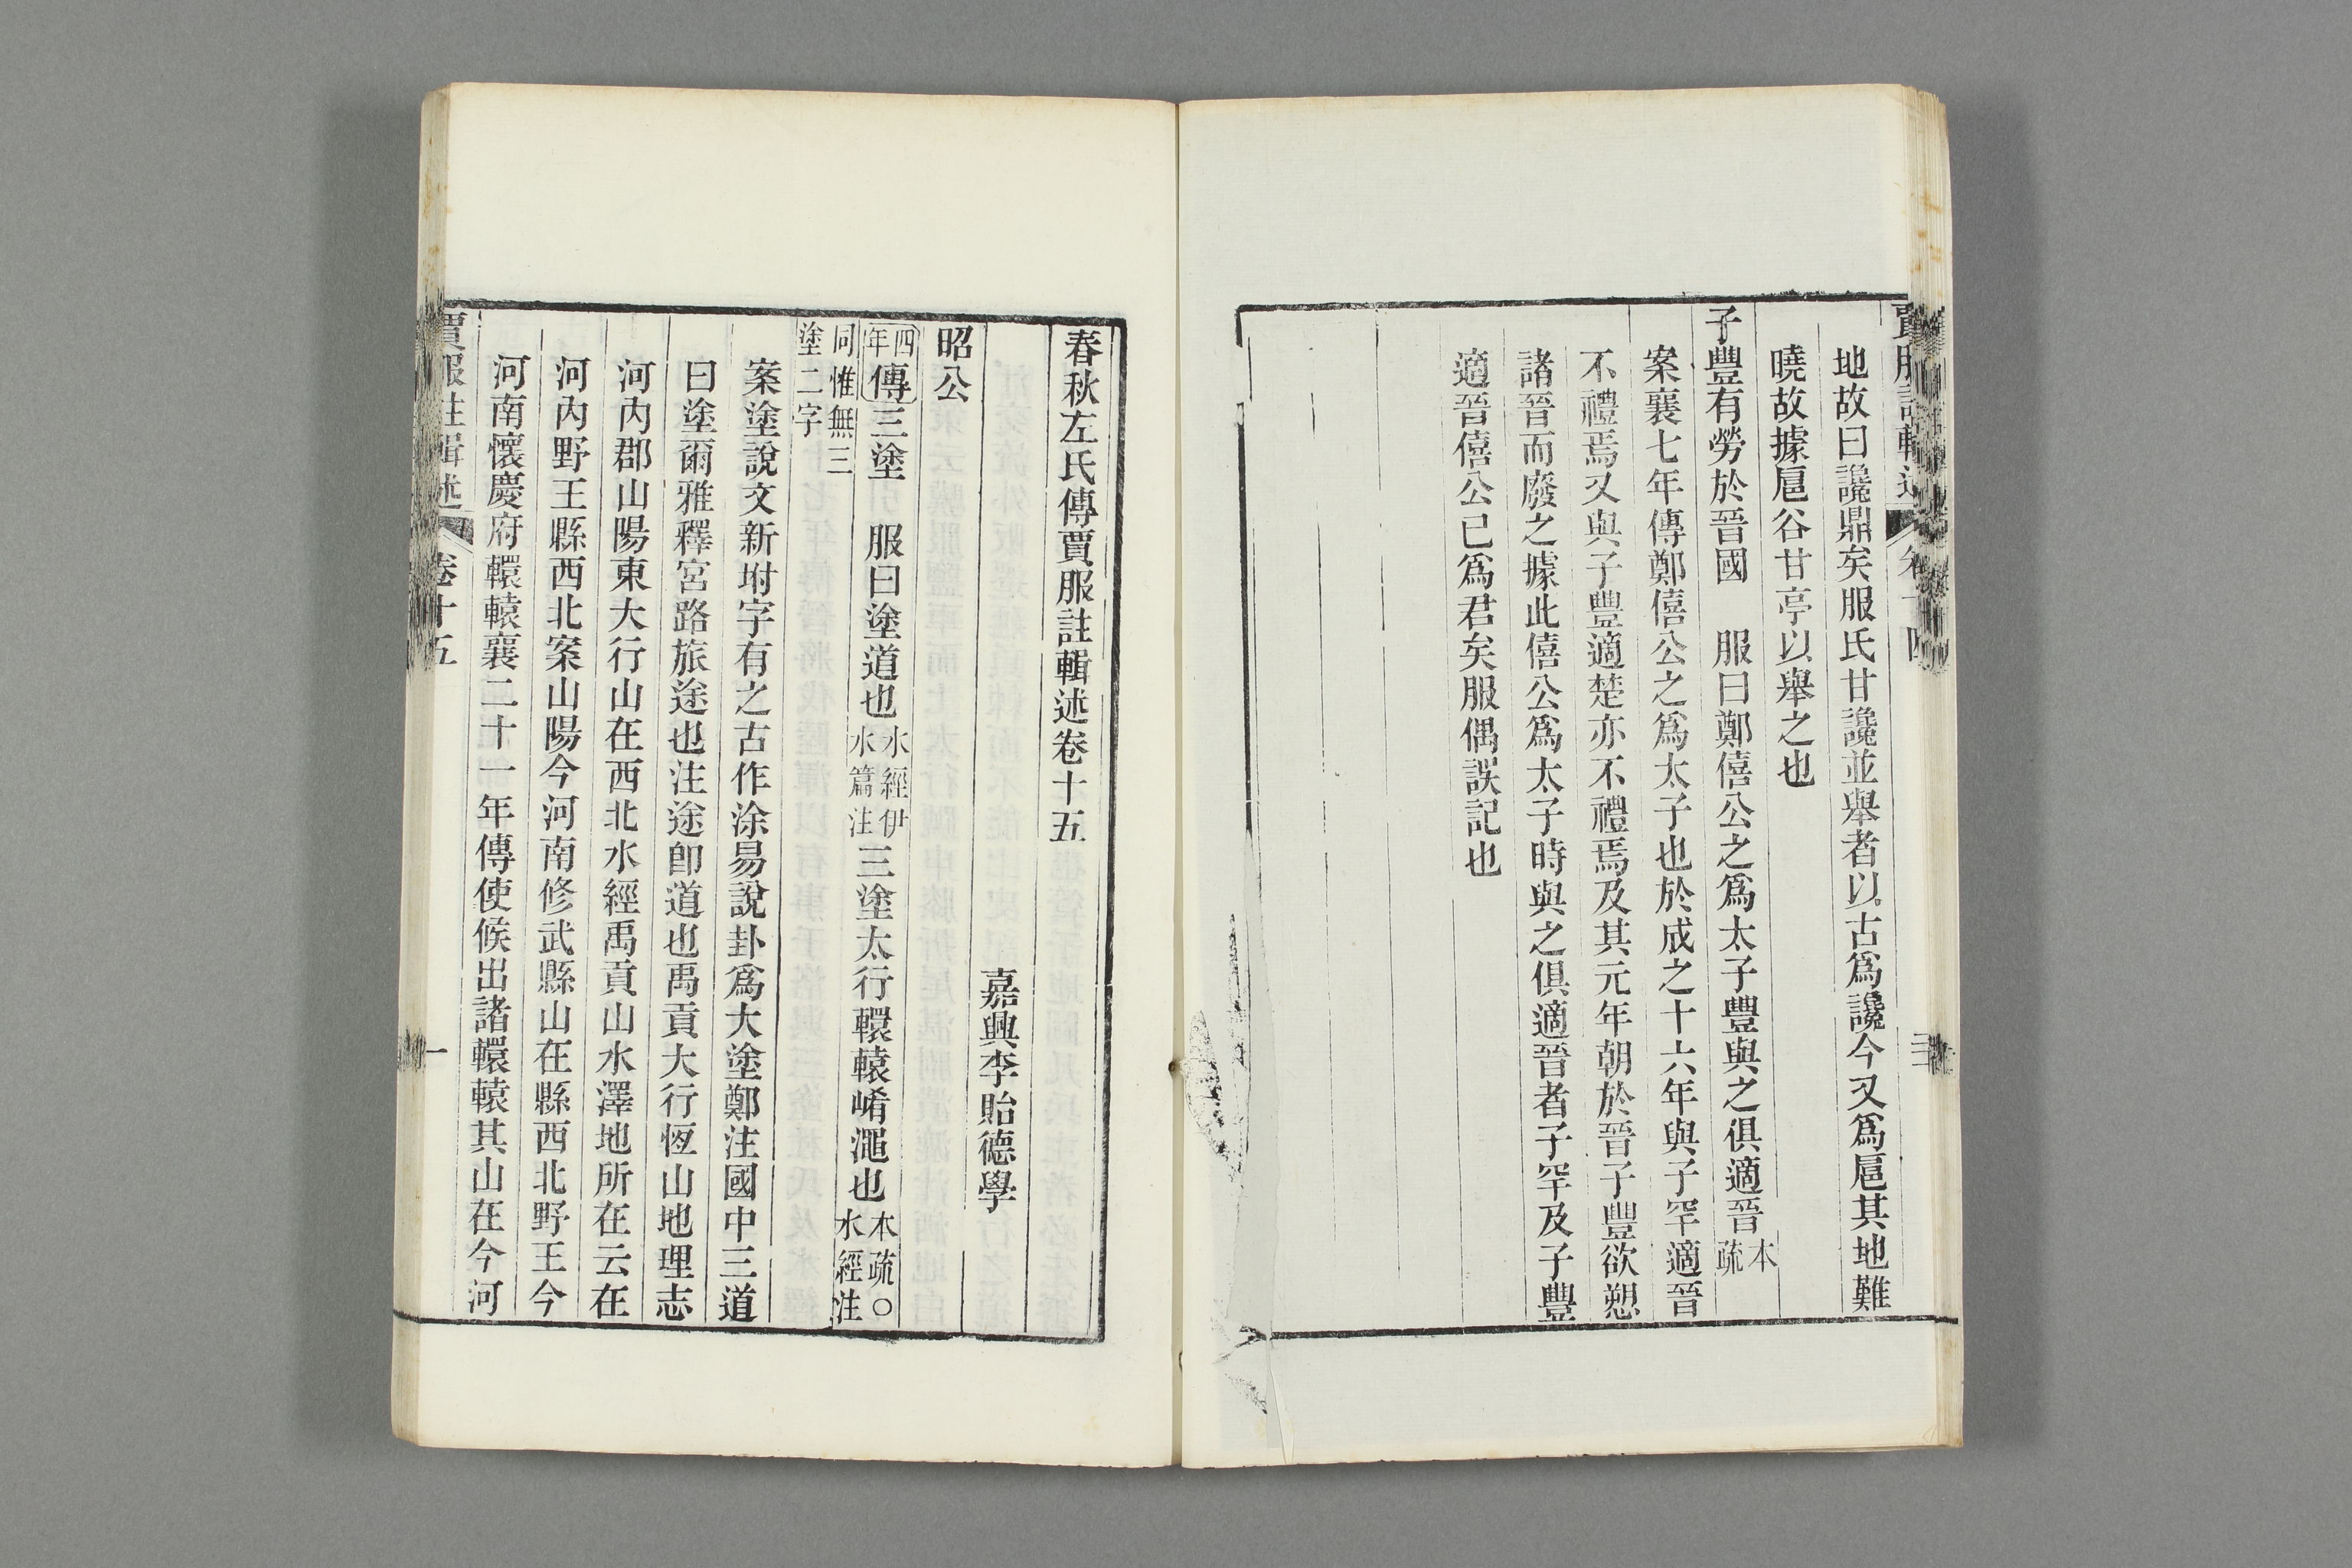 地故曰讒鼎矣服氏甘讒並舉者以古爲讒今又爲扈其地難
曉故據扈谷甘亭以舉之也
子豐有勞於晉國　服曰鄭僖公之爲太子豐與之俱適晉本疏
案襄七年傳鄭僖公之爲太子也於成之十六年與子罕適晉
不禮焉又與子豐適楚亦不禮焉及其元年朝於晉子豐欲愬
諸晉而廢之據此僖公爲太子時與之俱適晉者子罕及子豐
適晉僖公已爲君矣服偶誤記也
春秋左氏傳賈服註輯述卷十五
嘉興李貽德學
昭公
四年傳三塗　服曰塗道也水經伊水篇注三塗太行轘轅崤澠也本疏○水經注
同惟無三塗二字
案塗說文新坿字有之古作涂易說卦爲大塗鄭注國中三道
曰塗爾雅釋宮路旅途也注途卽道也禹貢大行恆山地理志
河內郡山陽東大行山在西北水經禹貢山水澤地所在云在
河內野王縣西北案山陽今河南修武縣山在縣西北野王今
河南懷慶府轘轅襄二十一年傳使候出諸轘轅其山在今河
賈服註輯述　卷十五　一